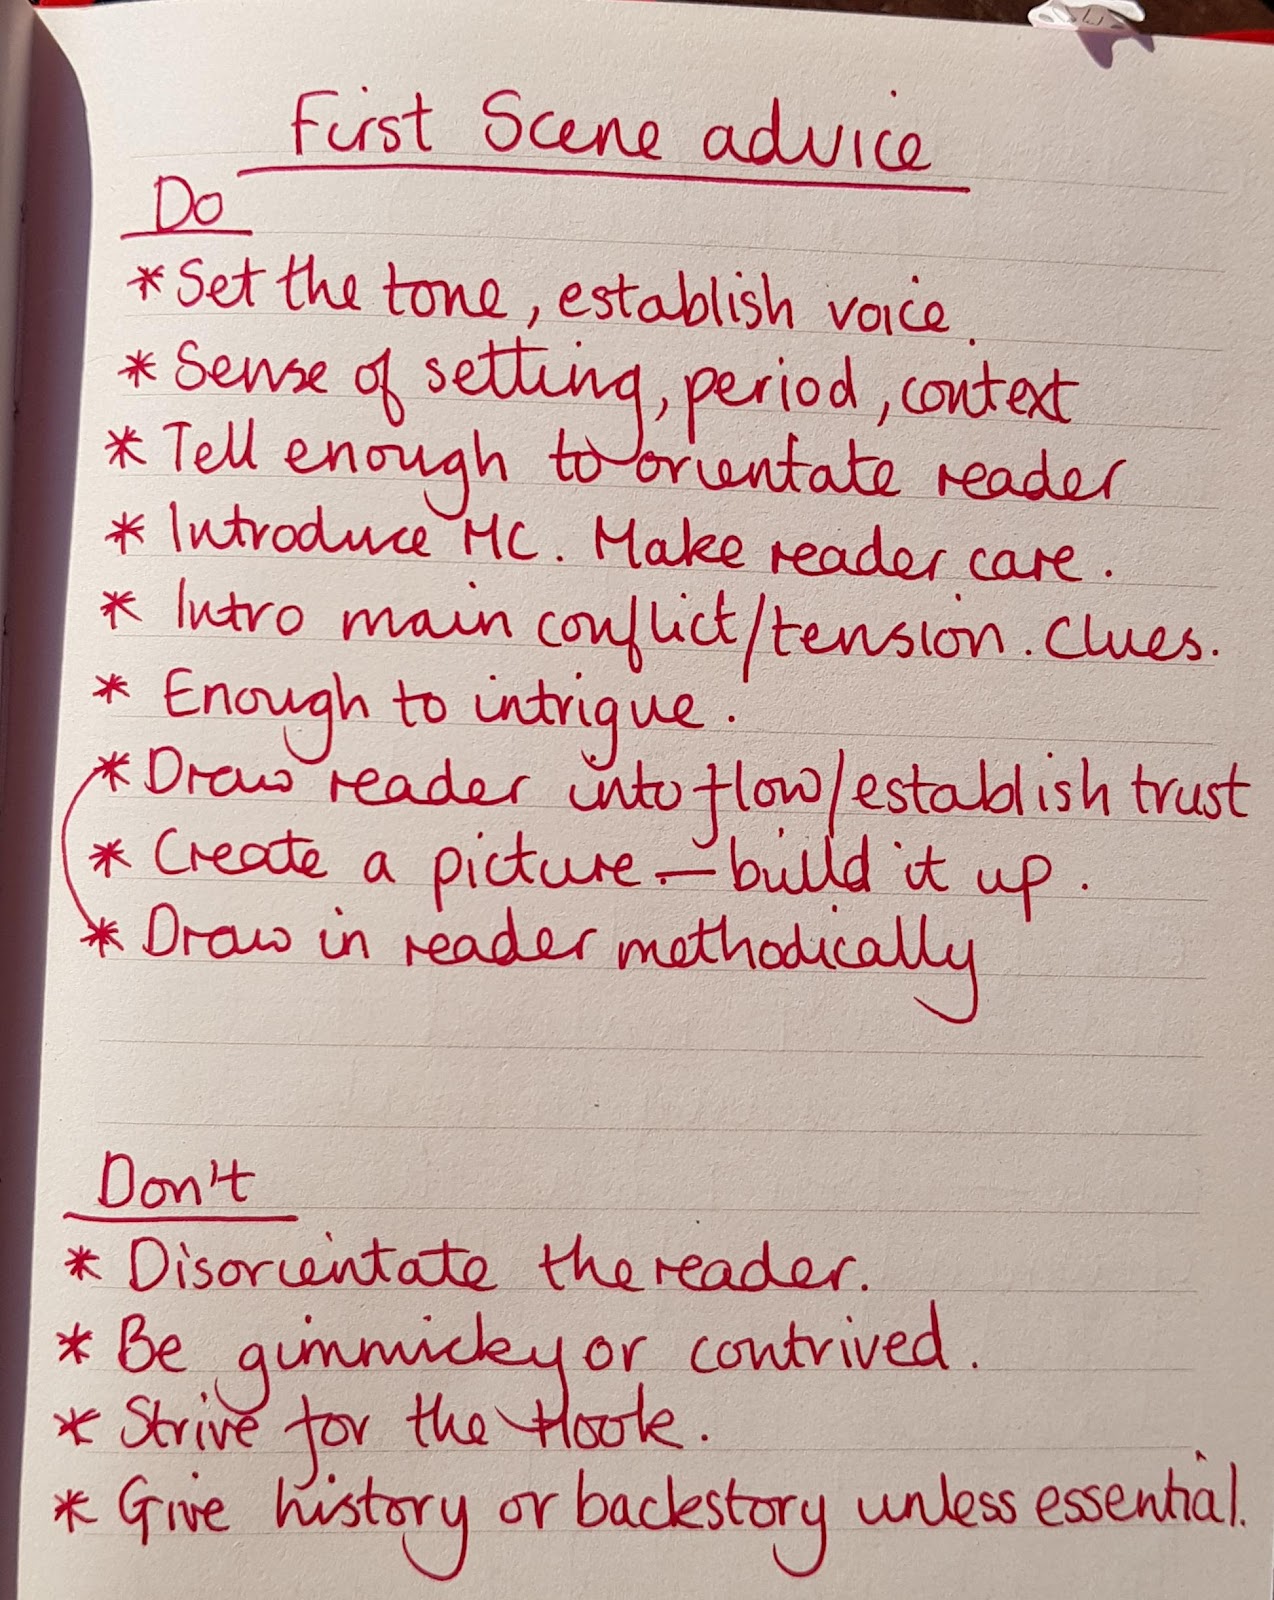 First Scene advice
Do
* Set the tone, establish voice.
* Sense of setting, period, context
* Tell enough to orientate reader
* Introduce MC. Make reader care.
* Intro main conflict/tension. Clues.
* Enough to intrigue.
* Draw reader into flow/establish trust
* Create a picture – build it up.
* Draw in reader methodically
Don't
* Disorientate the reader.
* Be gimmicky or contrived.
* Strive for the Hook.
* Give history or backstory unless essential.